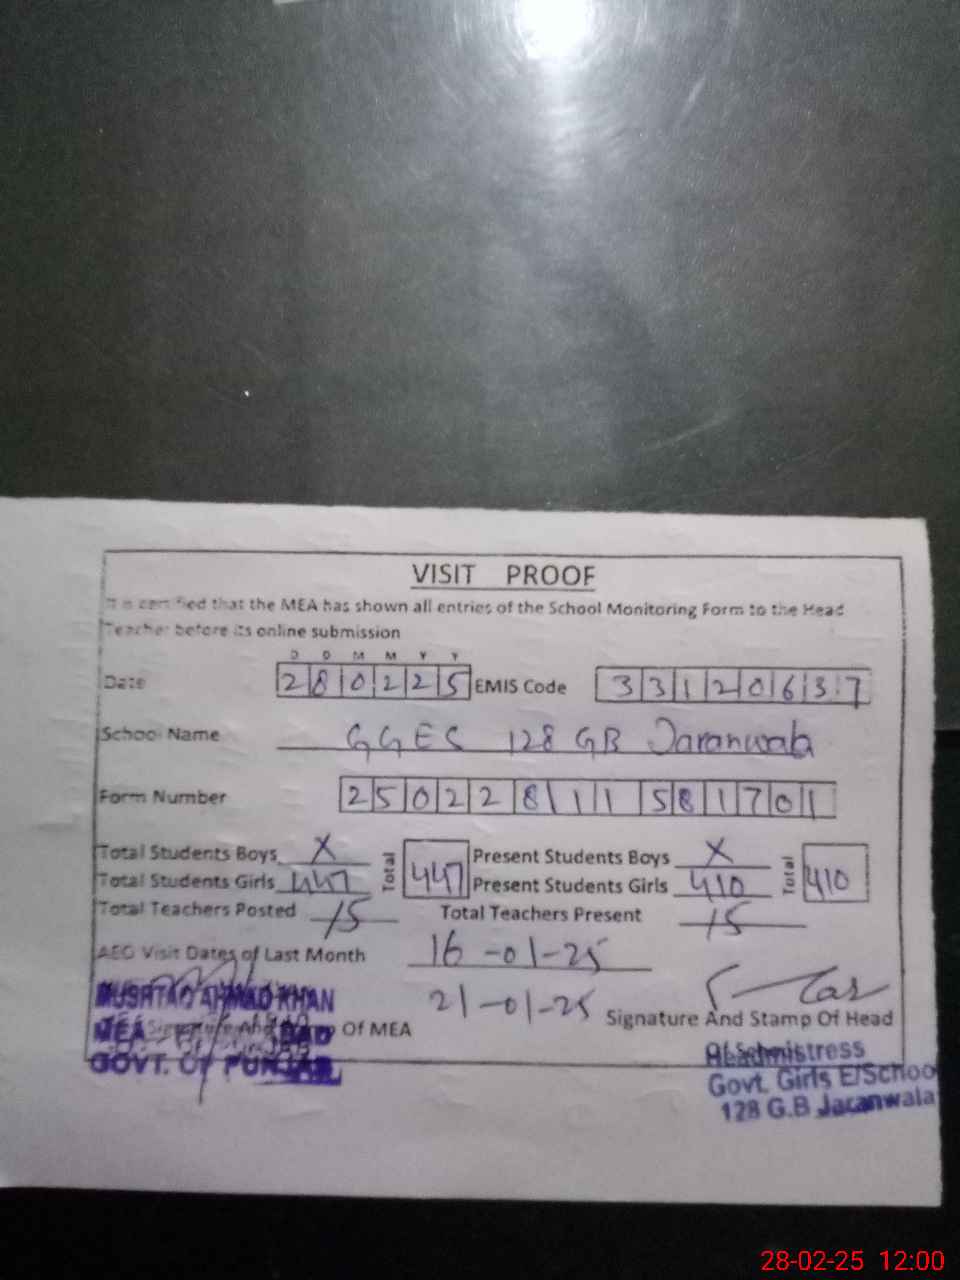 VISIT PROOF
It is certified that the MEA has shown all entries of the School Monitoring Form to the Head
Teacher before its online submission
D D M M Y Y
Date 280225 EMIS Code 33120637
School Name GGES 128 GB Jaranwala
Form Number 250228111581701
Total Students Boys X Total 447 Present Students Boys X Total 410
Total Students Girls 447 Present Students Girls 410
Total Teachers Posted 15 Total Teachers Present 15
AEO Visit Dates of Last Month 16-01-25
21-01-25
MUSHTAQ AHMAD KHAN
MEA Of MEA
GOVT. OF PUNJAB
Signature And Stamp Of Head
Headmistress
Govt. Girls E/School
128 G.B Jaranwala
28-02-25 12:00